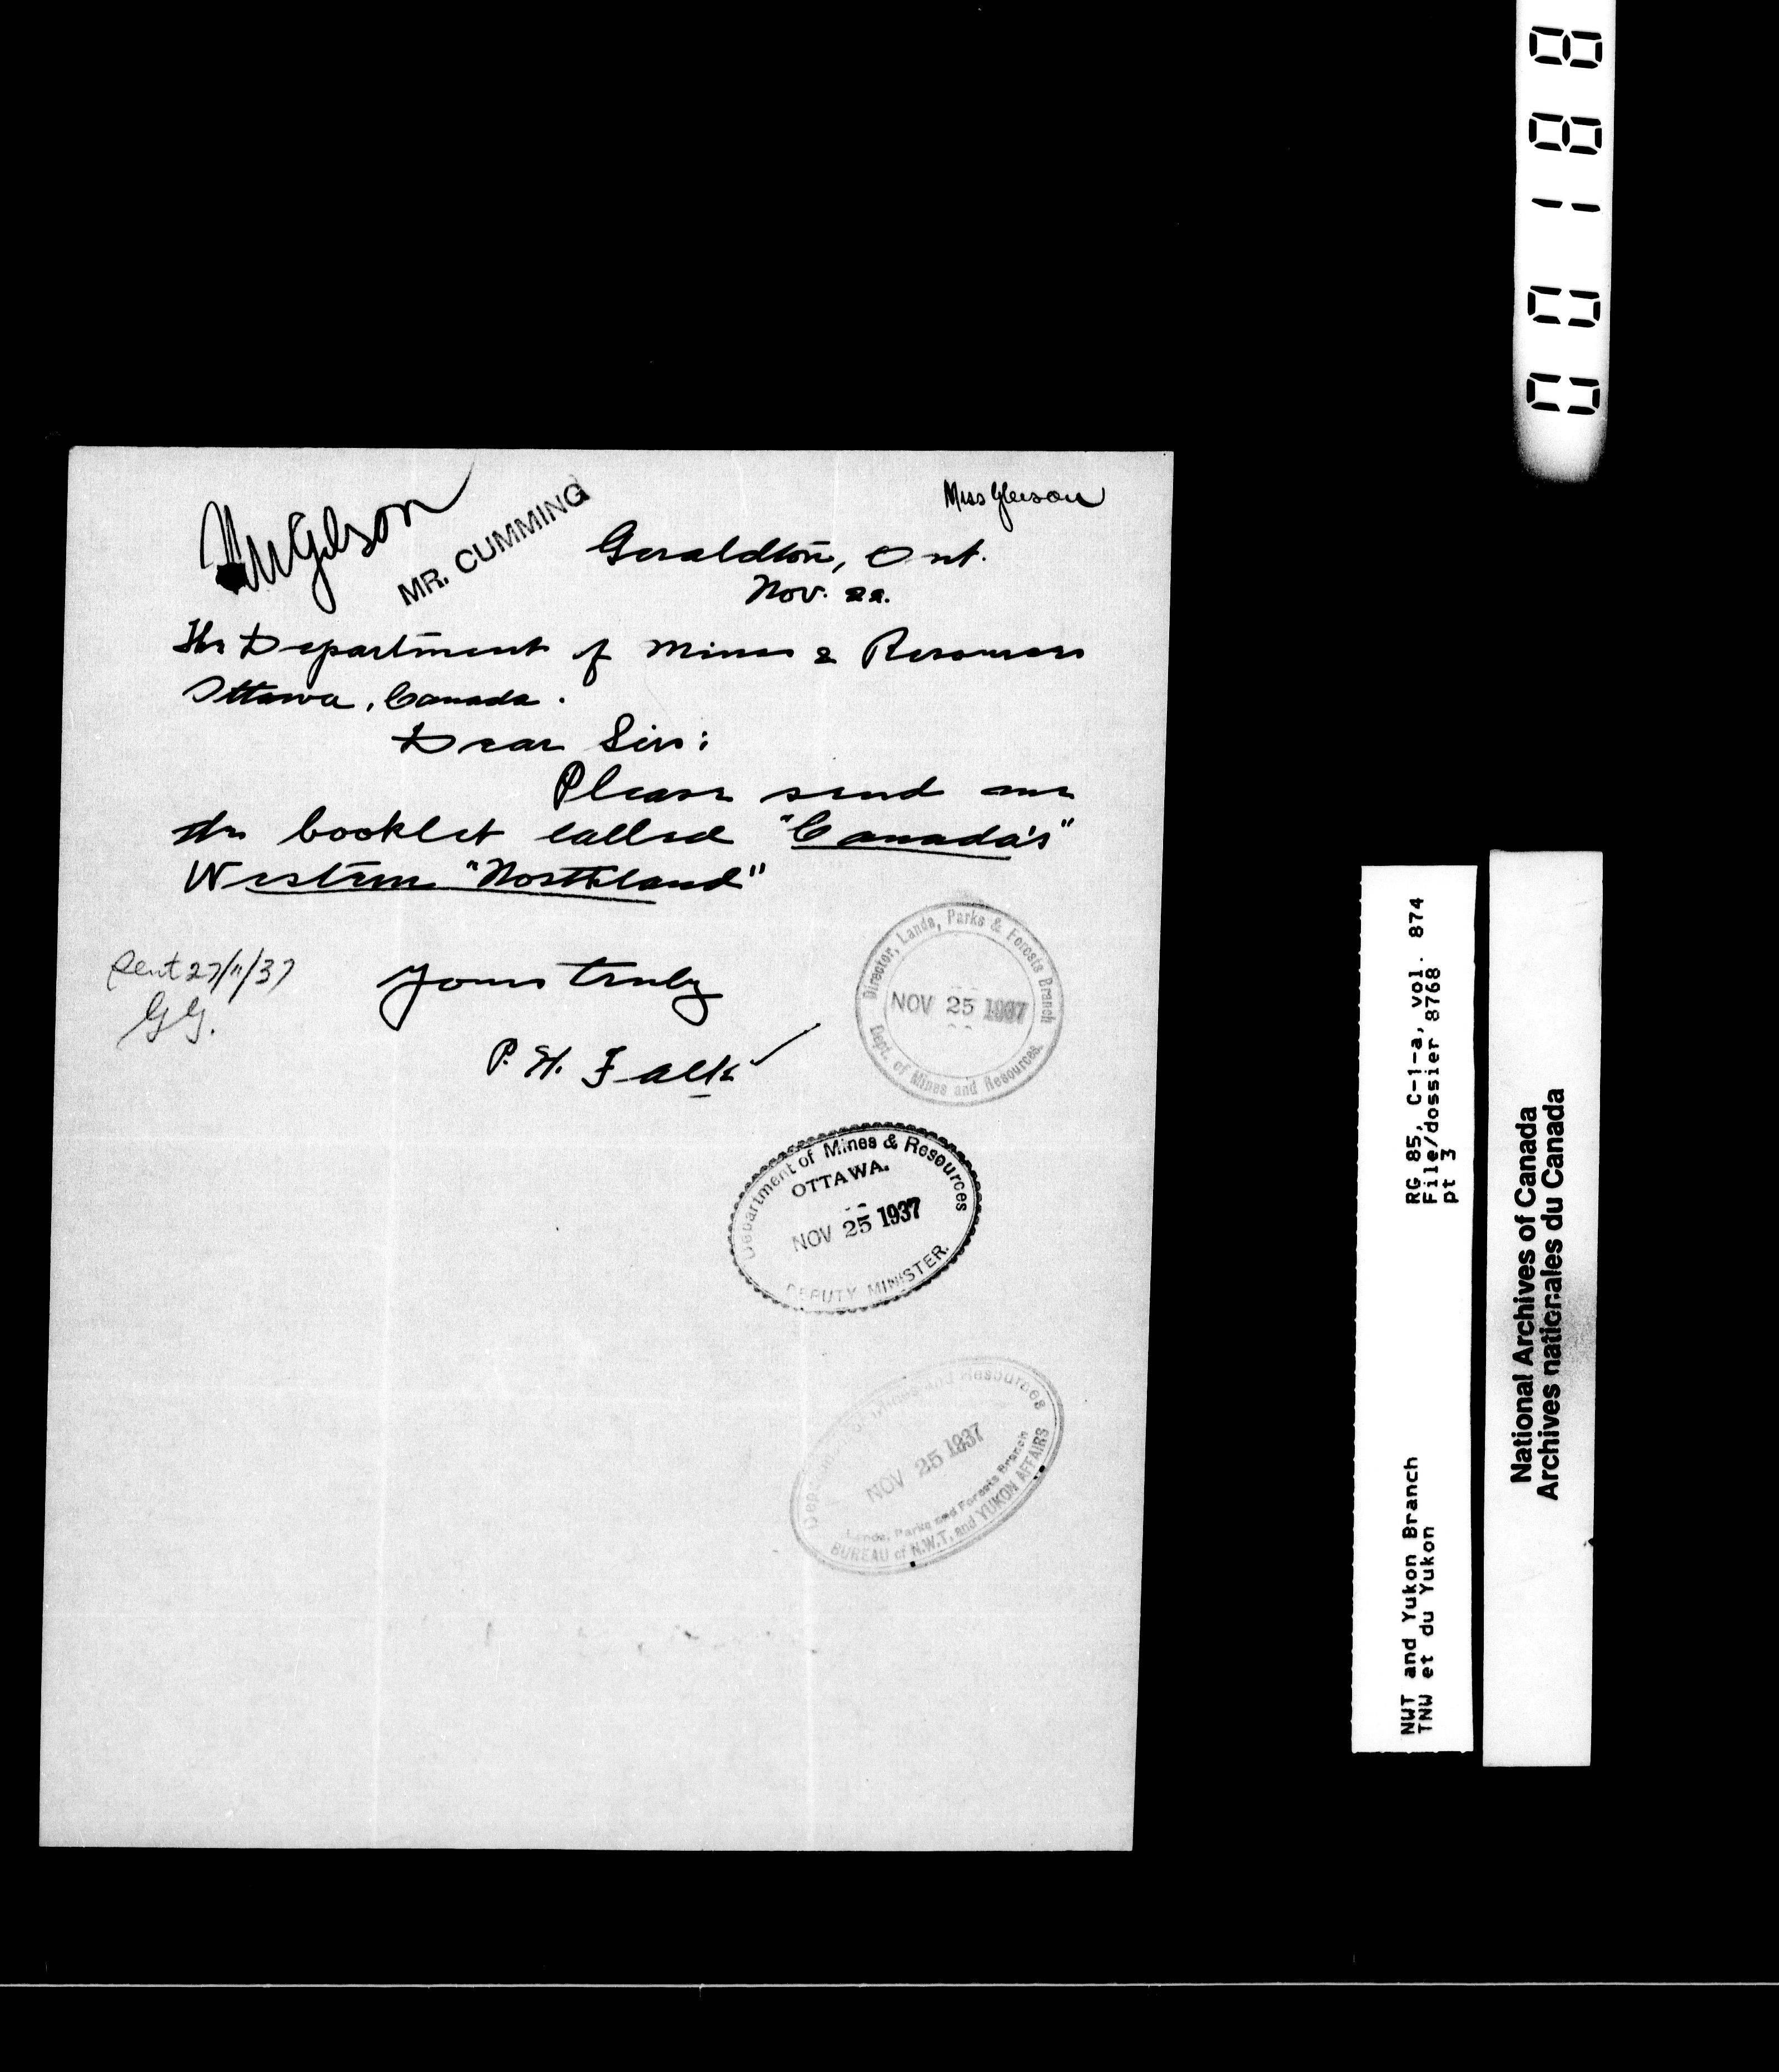 00188
Mr Gibson
MR. CUMMING
Miss Gleeson
Geraldton, Ont.
Nov. 22.
The Department of Mines & Resources
Ottawa, Canada.
Dear Sirs:
Please send me
the booklet called "Canada's"
Western "Northland"
Sent 27/11/37
GG.
Yours truly
P. H. Falk
Director, Lands, Parks & Forests Branch
NOV 25 1937
Dept. of Mines and Resources.
Department of Mines & Resources
OTTAWA.
NOV 25 1937
DEPUTY MINISTER.
Department of Mines and Resources
NOV 25 1937
Lands, Parks and Forests Branch
BUREAU of N.W.T. and YUKON AFFAIRS
NWT and Yukon Branch
TNW et du Yukon
RG 85, C-1-a, vol. 874
File/dossier 8768
pt 3
National Archives of Canada
Archives nationales du Canada